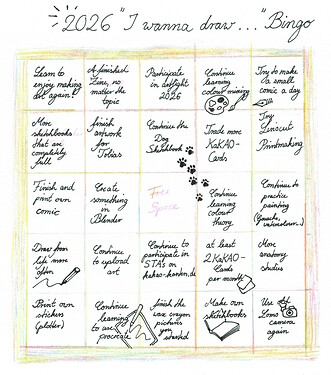 2026 "I wanna draw..." Bingo
Learn to
enjoy making
art again!
A finished
Zine, no
matter the
topic
Participate
in artfight
2026
Continue
learning
colour mixing
Try to make
a small
comic a day
More
sketchbooks
that are
completely
full
finish
artwork
for
Tobias
Continue the
Dog
Sketchbook
Trade more
KaKAO-
Cards
Try
Linocut
Printmaking
Finish and
print own
comic
Create
something
in
Blender
Free
Space
Continue
learning
colour
theory
Continue to
practice
painting
(Gouache, watercolours...)
Draw from
life more
often
Continue
to upload
art
Continue to
participate in
STAs on
kakao-karten.de
at least
2 KAKAO-
Cards
per month
More
anatomy
studies
Print own
stickers
(plotter)
Continue
learning
to use
procreate
finish the
wax crayon
pictures
you
started
Make own
sketchbooks
Use
Lomo
camera
again